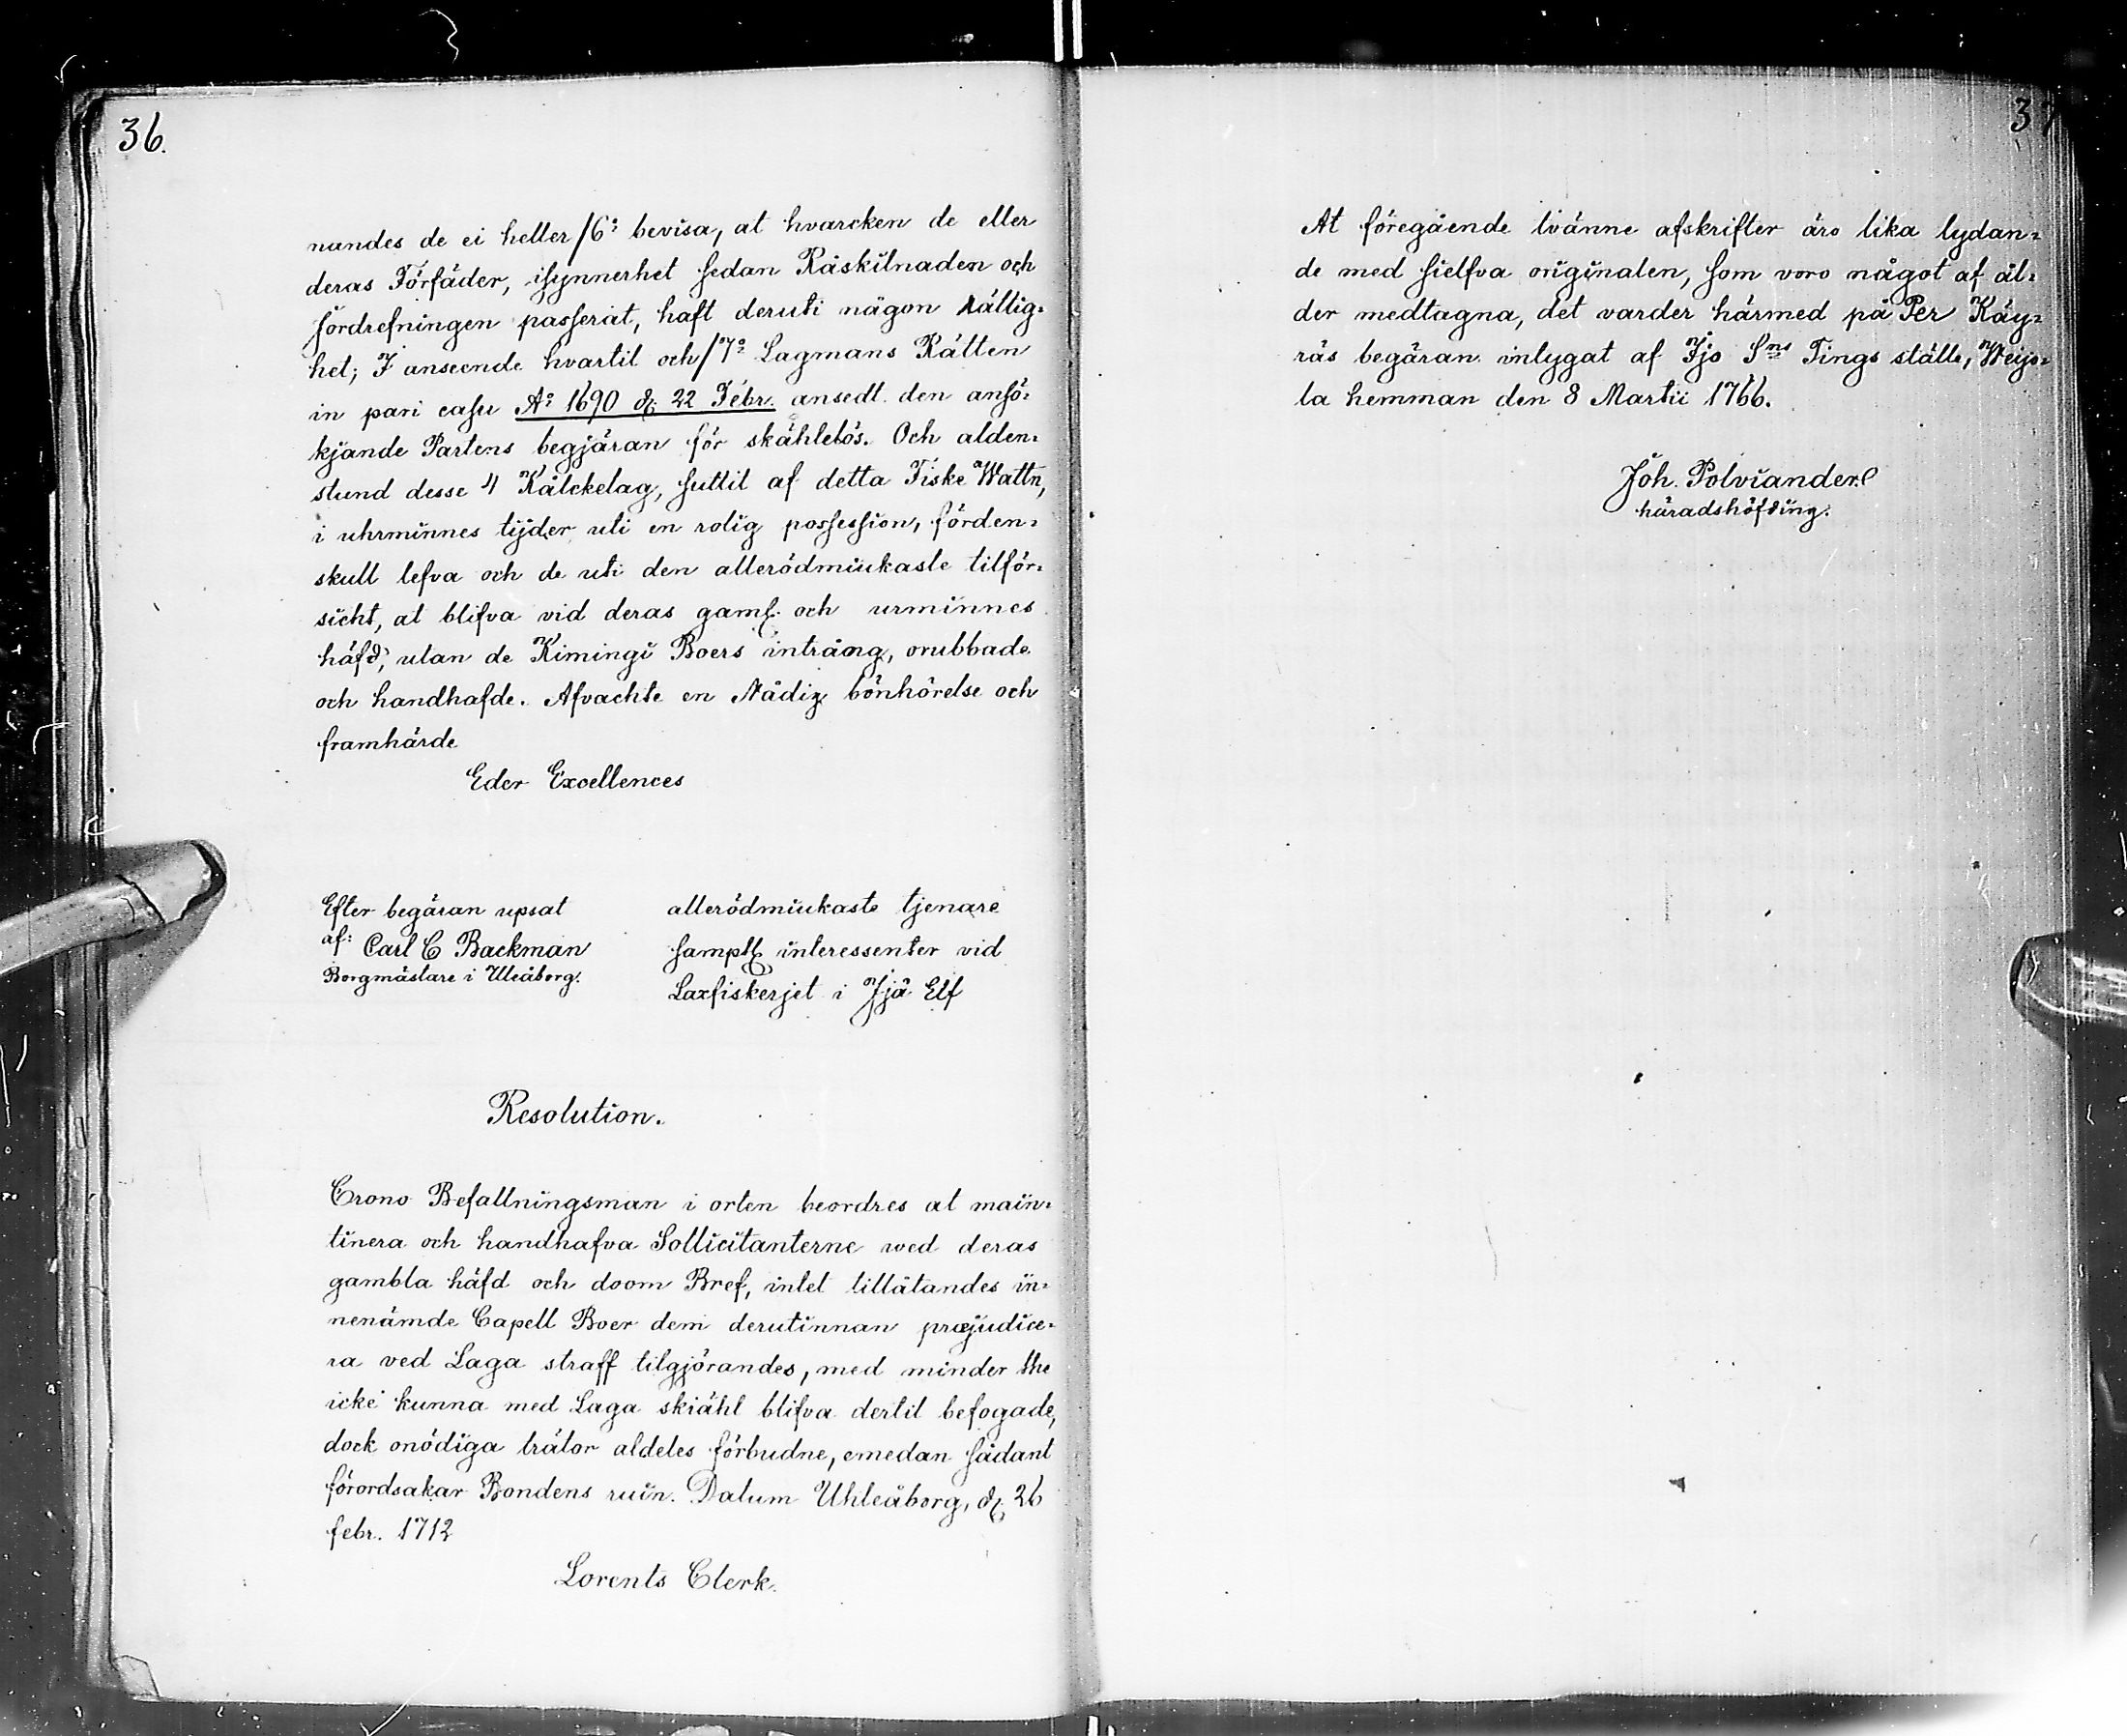 36.
nandes de ei heller/6:⁰ bevisa, at hvarcken de eller
deras Förfäder, isynnerhet sedan Råskilnaden och
fördrefningen passerat, haft deruti någon rättig=
het; I anseende hvartil och/7:⁰ Lagmans Rätten
in pari casu A:⁰ 1690 d. 22 Febr. ansedt den ansö=
kjande Partens begjäran för skählelös. Och alden=
stund desse 4 Kålckelag, suttit af detta Fiske Wattn,
i uhrminnes tijder uti en rolig possession, förden=
skull lefva och de uti den allerödmiukaste tilför=
sicht, at blifva vid deras gaml. och urminnes
häfd, utan de Kimingi Boers intrång, orubbade
och handhafde. Afvachte en Nådig bönhörelse och
framhärde
Eder Excellences
Efter begäran upsat
af: Carl C Backman
Borgmästare i Uleåborg.
allerödmiukaste tjenare
samptl interessenter vid
Laxfiskerjet i Jjå Elf
Resolution.
Crono Befallningsman i orten beordres at main=
tinera och handhafva Sollicitanterne wed deras
gambla häfd och doom Bref, intet tillåtandes in=
nenämde Capell Boer dem derutinnan præjudice=
ra ved Laga straff tilgjörandes, med minder the
icke kunna med Laga skiähl blifva dertil befogade,
dock onödiga trätor aldeles förbudne, emedan sådant
förordsakar Bondens ruin. Datum Uhleåborg, d. 26
febr. 1712
Lorents Clerk.
37
At föregående tvänne afskrifter äro lika lydan=
de med sielfva originalen, som voro något af ål=
der medtagna, det varder härmed på Per Käy=
räs begäran intygat af Jjo Sns Tings ställe, Weijo=
la hemman den 8 Martii 1766.
Joh. Polviander.
häradshöfding.